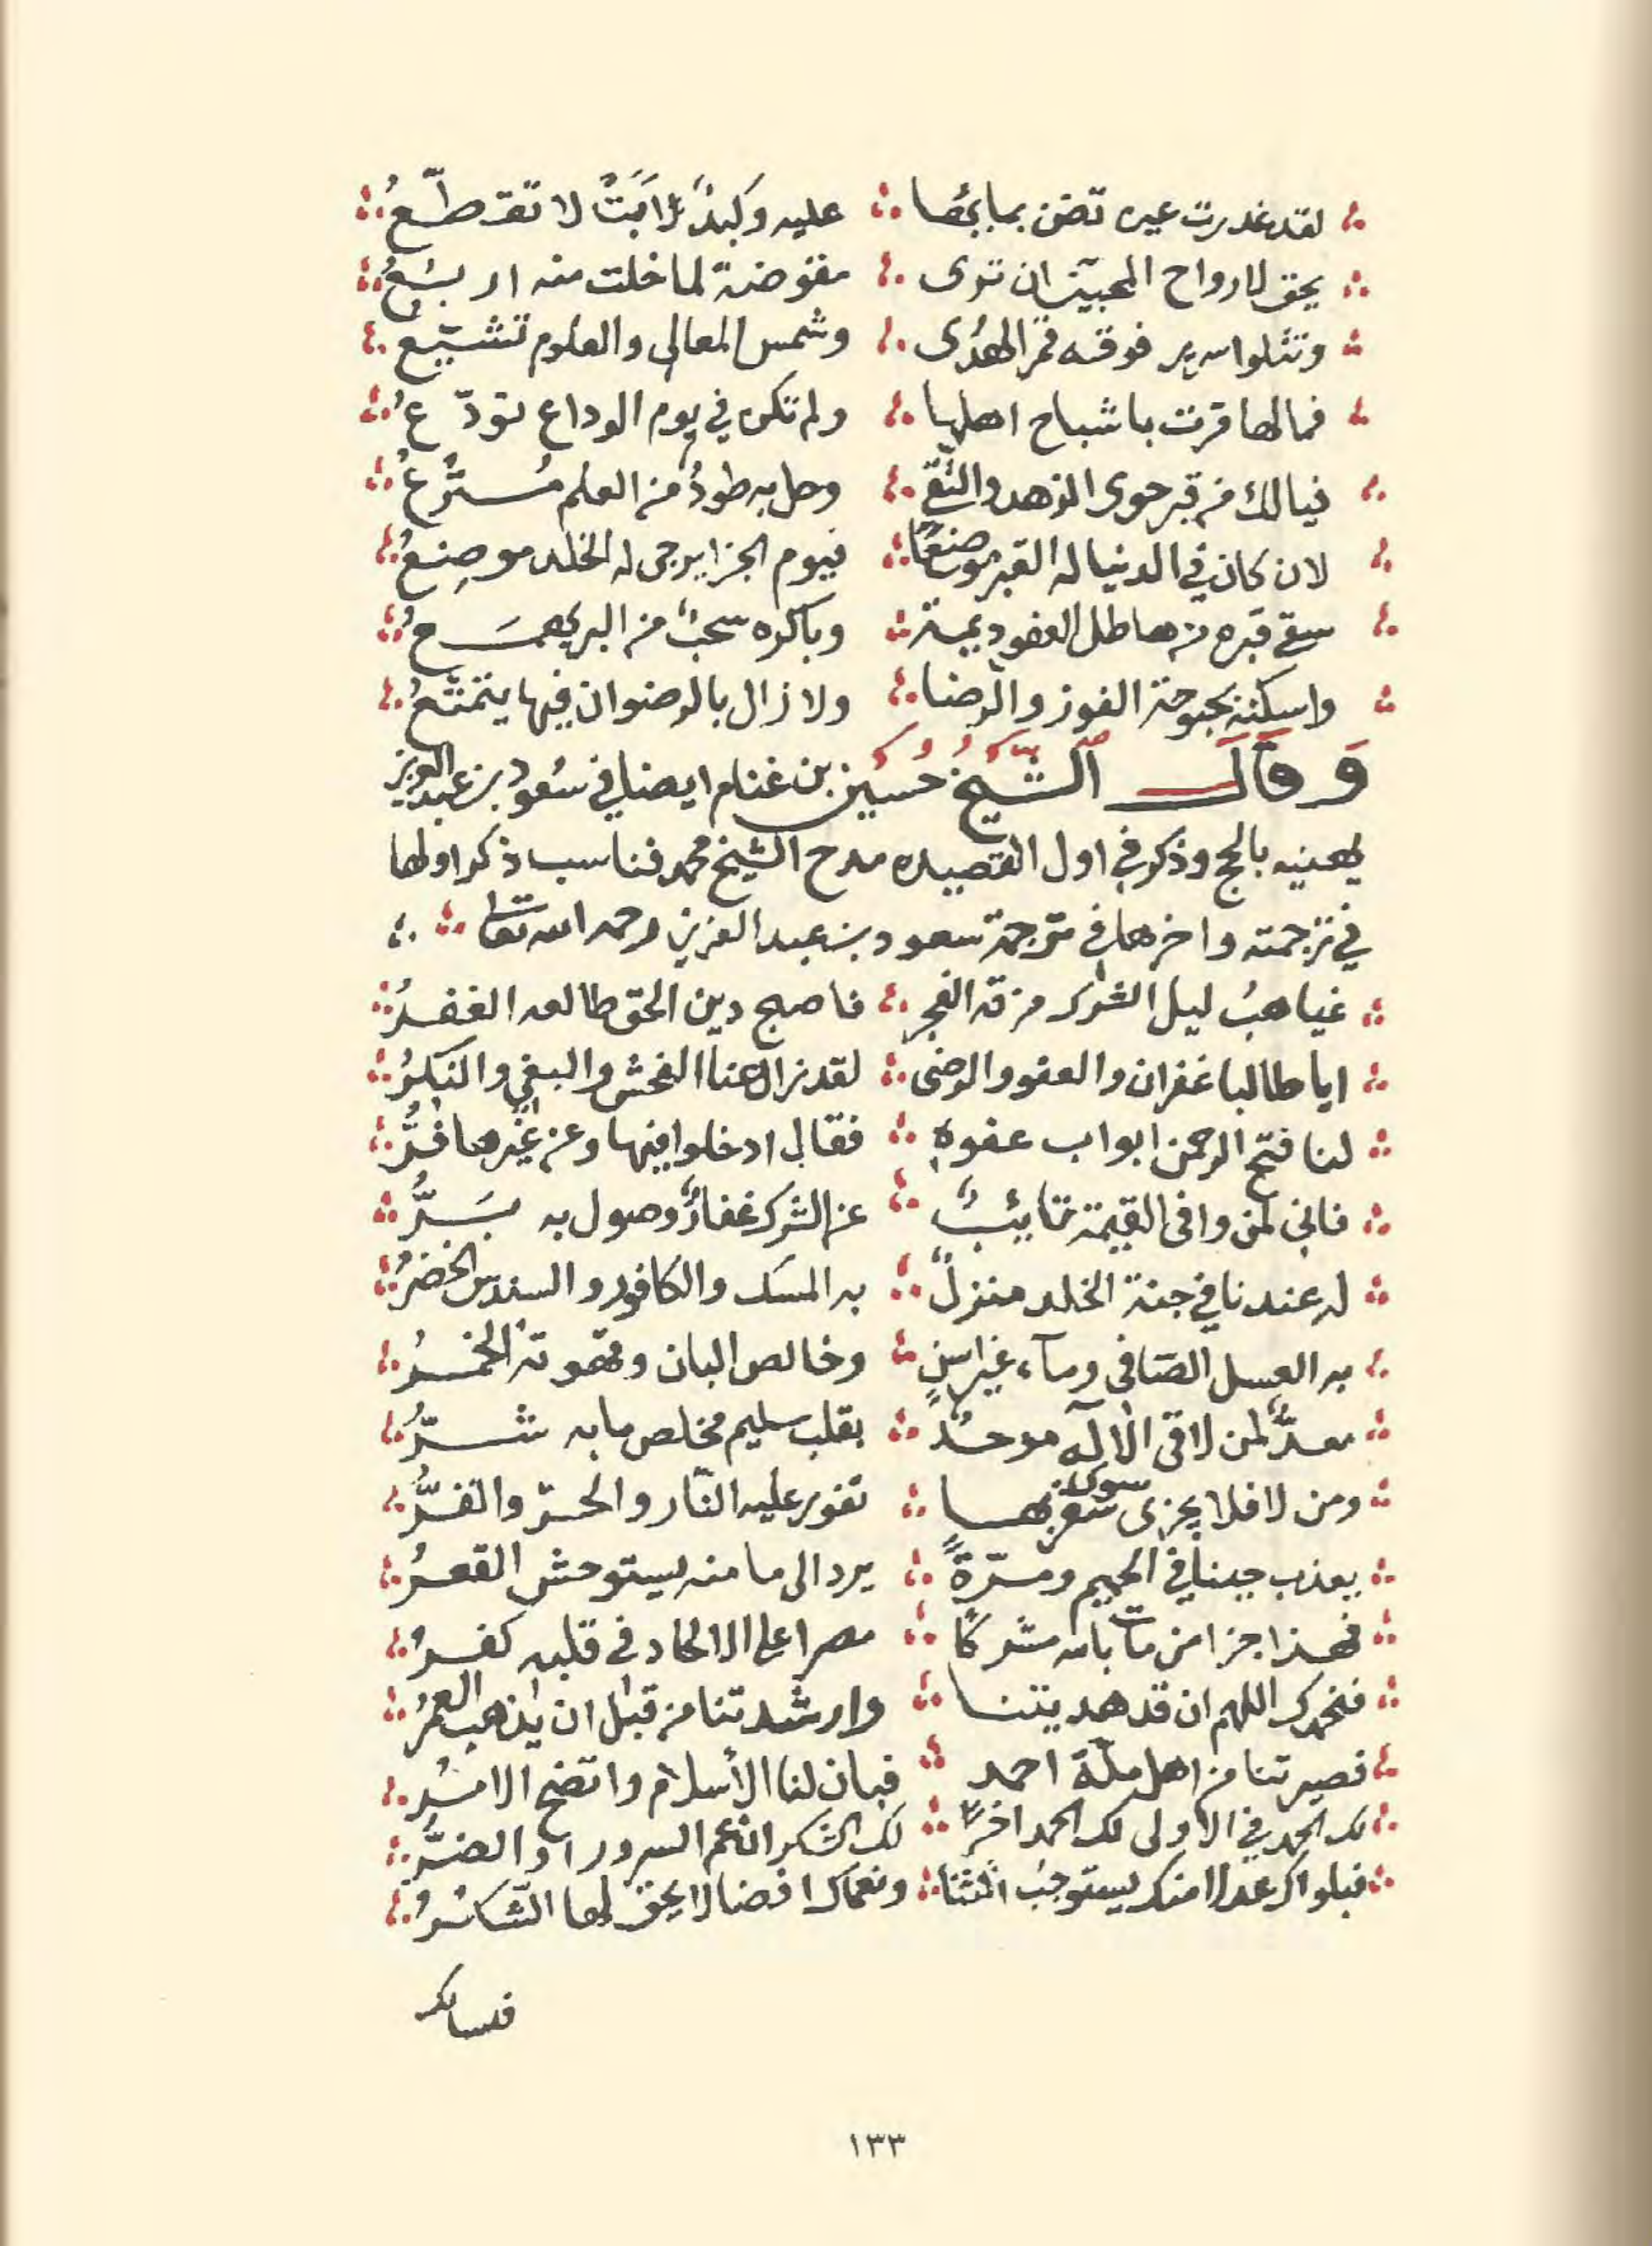 لقد غدرت عين تضن بمائها عليه وكبدٌ لا تقطّعُ
يحق لارواح المحبين ان ترى مقوضة لما خلت منه اربعُ
وتتلوا سرير فوقه قمر الهُدى وشمس المعالى والعلوم تشيّع
فما لها قرت باشباح اهلها ولم تكن في يوم الوداع تودّعُ
فيالك من قبر حوى الزهد والتقى وحل به طودٌ من العلم مُترعُ
لان كان في الدنيا له القبر موضعًا فيوم الجزا يرجى له الخلد موضعُ
سقى قبره من هاطل العفو ديمة وباكره سحبٌ من البر يهمَعُ
واسكنه بحبوحة الفوز والرضا ولا زال بالرضوان فيها يتمتعُ
وَقالَ الشيخُ حُسين بن غنام ايضا في سُعود بن عبد العزيز
يهنيه بالحج وذكر في اول القصيده مدح الشيخ محمد فناسب ذكر اولها
في ترجمته واخرها في ترجمة سعود بن عبد العزيز رحمه الله تعا
غياهبُ ليل الشرك مزقه الفجر فاصبح دين الحق طالعه الغفرُ
ايا طالبا غفران والعفو والرضى لقد زال عنا الفحش والبغي والنكرُ
لنا فتح الرحمن ابواب عفوه فقال ادخلوا فيها وعن غيرها فرُّ
فانى لمن وافى القيمة تائبٌ عن الشرك غفارٌ وصول به بَرُّ
له عندنا في جنة الخلد منزلٌ به المسك والكافور والسندس الخضرُ
به العسل الصافى ومآء غير اسنٍ وخالص البان وقهوته الخمرُ
معدٌّ لمن لاقى الالٓه موحدٌ بقلب سليم مخلص ما به شرُّ
ومن لا فلا يجزى سوى سقر بها تفور عليه النار والحرّ والقرُّ
يعذب حينا في الجحيم ومرّةً يرد الى ما منه يستوحش القعرُ
فهذا جزا من مات بالله مشركًا مصرا على الالحاد في قلبه كفرُ
فنحمدك اللهم ان قد هديتنا وارشدتنا من قبل ان يذهب العمرُ
فصيرتنا من اهل ملّة احمد فبان لنا الأسلام واتضح الامرُ
لك الحمد في الاولى لك الحمد اخرًا لك الشكر ان عم السرور او الضرُّ
فبلواك عدلا منك يستوجب الثنا ونعماك افضالا يحق لها الشكرُ
فسالك
١٣٣